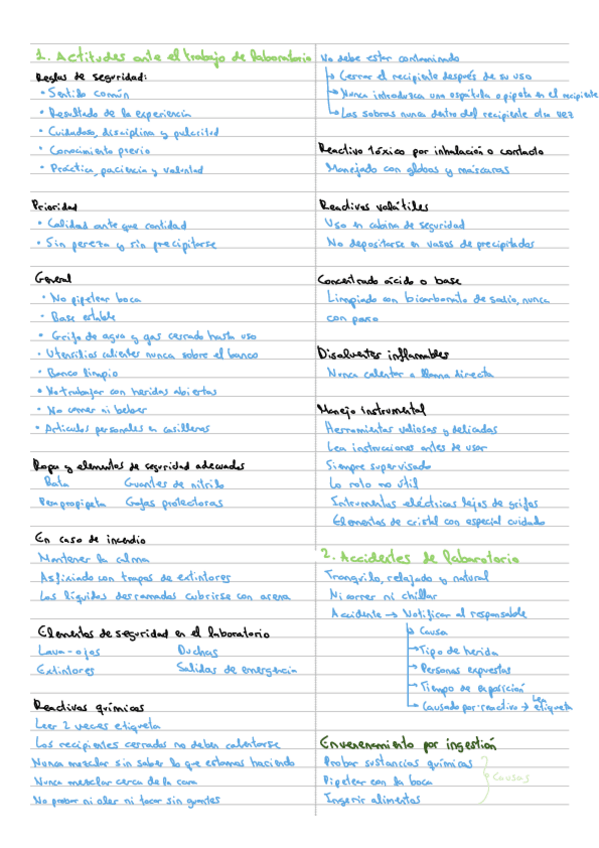 1. Actitudes ante el trabajo de laboratorio
Reglas de seguridad:
• Sentido común
• Resultado de la experiencia
• Cuidadoso, disciplina y pulcritud
• Conocimiento previo
• Práctica, paciencia y voluntad
Prioridad
• Calidad ante que cantidad
• Sin pereza y sin precipitarse
General
• No pipetear boca
• Base estable
• Grifo de agua y gas cerrado hasta uso
• Utensilios calientes nunca sobre el banco
• Banco limpio
• No trabajar con heridas abiertas
• No comer ni beber
• Artículos personales en casilleros
Ropa y elementos de seguridad adecuados
Bata Guantes de nitrilo
Gafas protectoras
En caso de incendio
Mantener la calma
Asfixiado con trapos de extintores
Los líquidos derramados cubrirse con arena
Elementos de seguridad en el laboratorio
Lava-ojos Duchas
Extintores Salidas de emergencia
Reactivos químicos
Leer 2 veces etiqueta
Los recipientes cerrados no deben calentarse
Nunca mezclar sin saber lo que estamos haciendo
Nunca mezclar cerca de la cara
No probar ni oler ni tocar sin guantes
No debe estar contaminado
→ Cerrar el recipiente después de su uso
→ Nunca introduzca una espátula o pipeta en el recipiente
→ Las sobras nunca dentro del recipiente otra vez
Reactivo tóxico por inhalación o contacto
Manejado con globos y máscaras
Reactivos volátiles
Uso en cabina de seguridad
No depositarse en vasos de precipitados
Concentrado ácido o base
Limpiado con bicarbonato de sodio, nunca
con paño
Disolventes inflamables
Nunca calentar a llama directa
Manejo instrumental
Herramientas valiosas y delicadas
Lea instrucciones antes de usar
Siempre supervisado
Lo roto no útil
Intrumentos eléctricos lejos de grifos
Elementos de cristal con especial cuidado
2. Accidentes de laboratorio
Tranquilo, relajado y natural
Ni correr ni chillar
Accidente → Notificar al responsable
→ Causa
→ Tipo de herida
→ Personas expuestas
→ Tiempo de exposición
→ Causado por reactivo → Lea etiqueta
Envenenamiento por ingestión
Probar sustancias químicas
Pipetear con la boca
Causas
Ingerir alimentos